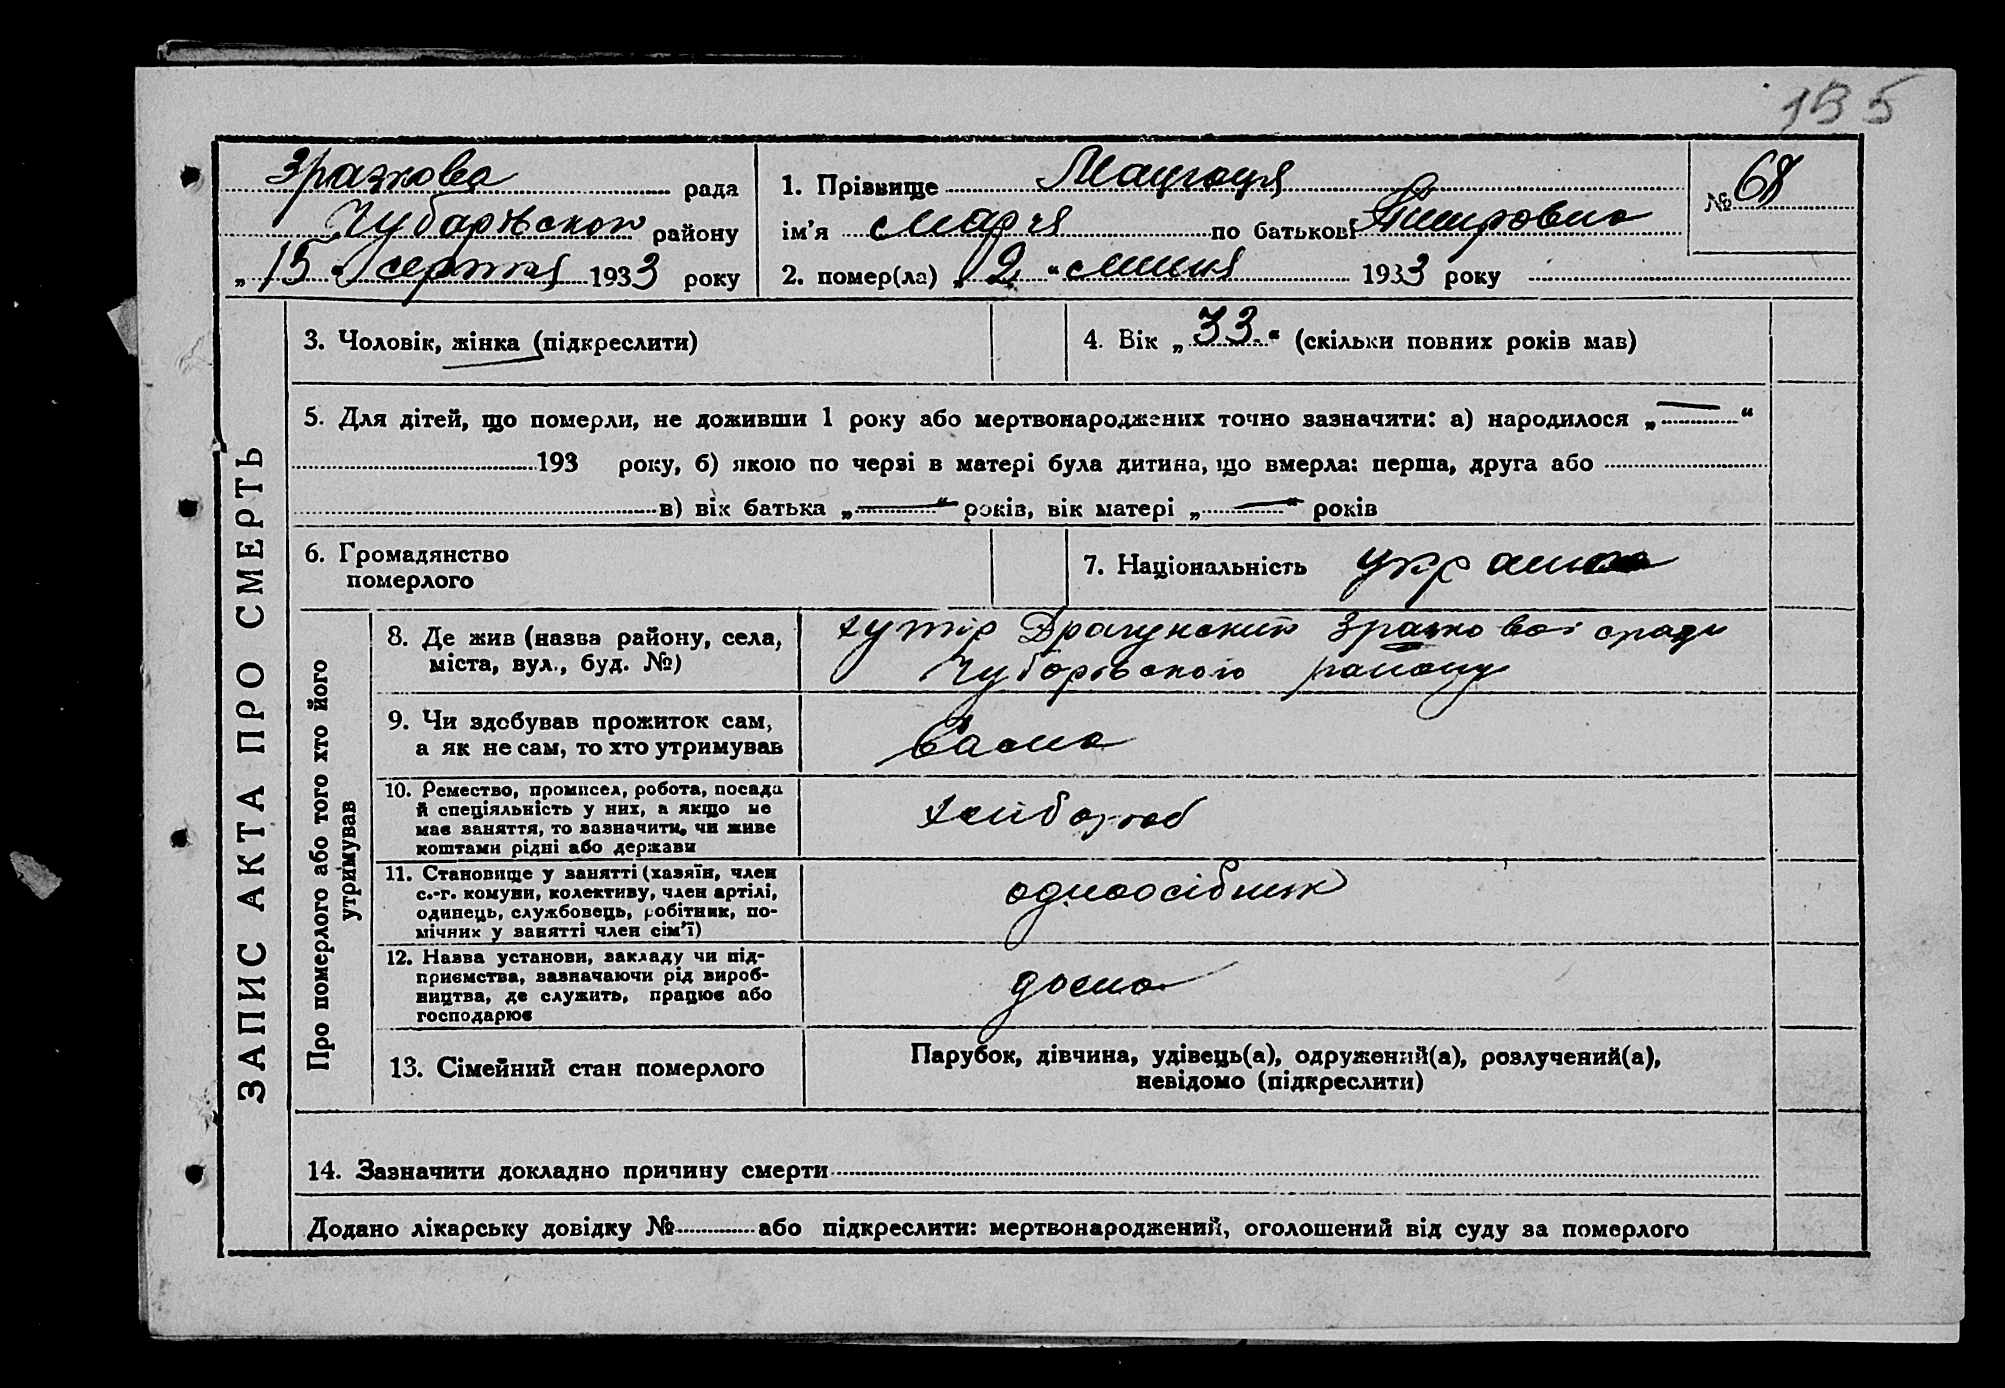 195
Зразкова рада
Чубарівського району
„15" серпня 1933 року
1. Прізвище Мацюця
ім'я Марія по батькові
2. помер(ла) „2" липня 1933 року
№ 68
ЗАПИС АКТА ПРО СМЕРТЬ
3. Чоловік, жінка (підкреслити)
4. Вік „33" (скільки повних років мав)
5. Для дітей, що померли, не доживши 1 року або мертвонароджених точно зазначити: а) народилося „—"
193 року, б) якою по черзі в матері була дитина, що вмерла: перша, друга або
в) вік батька „—" років, вік матері „—" років
6. Громадянство
померлого
7. Національність українка
Про померлого або того хто його
утримував
8. Де жив (назва району, села,
міста, вул., буд. №)
хутір Драгунський Зразкової сради
Чубарівського району
9. Чи здобував прожиток сам,
а як не сам, то хто утримував
Сама
10. Ремество, промисел, робота, посада
й спеціяльність у них, а якщо не
мав заняття, то зазначити, чи живе
коштами рідні або держави
хлібороб
11. Становище у занятті (хазяїн, член
с.-г. комуни, колективу, член артілі,
одинець, службовець, робітник, по-
мічних у занятті член сім'ї)
одноосібник
12. Назва установи, закладу чи під-
приємства, зазначаючи рід вироб-
ництва, де служить, працює або
господарює
дома
13. Сімейний стан померлого
Парубок, дівчина, удівець(а), одружений(а), розлучений(а),
невідомо (підкреслити)
14. Зазначити докладно причину смерти
Додано лікарську довідку № або підкреслити: мертвонароджений, оголошений від суду за померлого